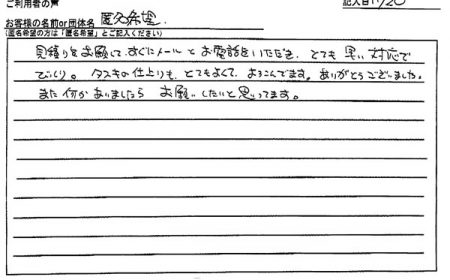 ご利用者の声
記入日 11/20
お客様の名前or団体名 匿名希望.
(匿名希望の方は「匿名希望」とご記入ください)
見積りをお願いして、すぐにメールとお電話をいただき、とても早い対応で
びっくり。タスキの仕上りも、とてもよくて、よろこんでます。ありがとうございました。
また何かありましたら お願いしたいと思ってます。